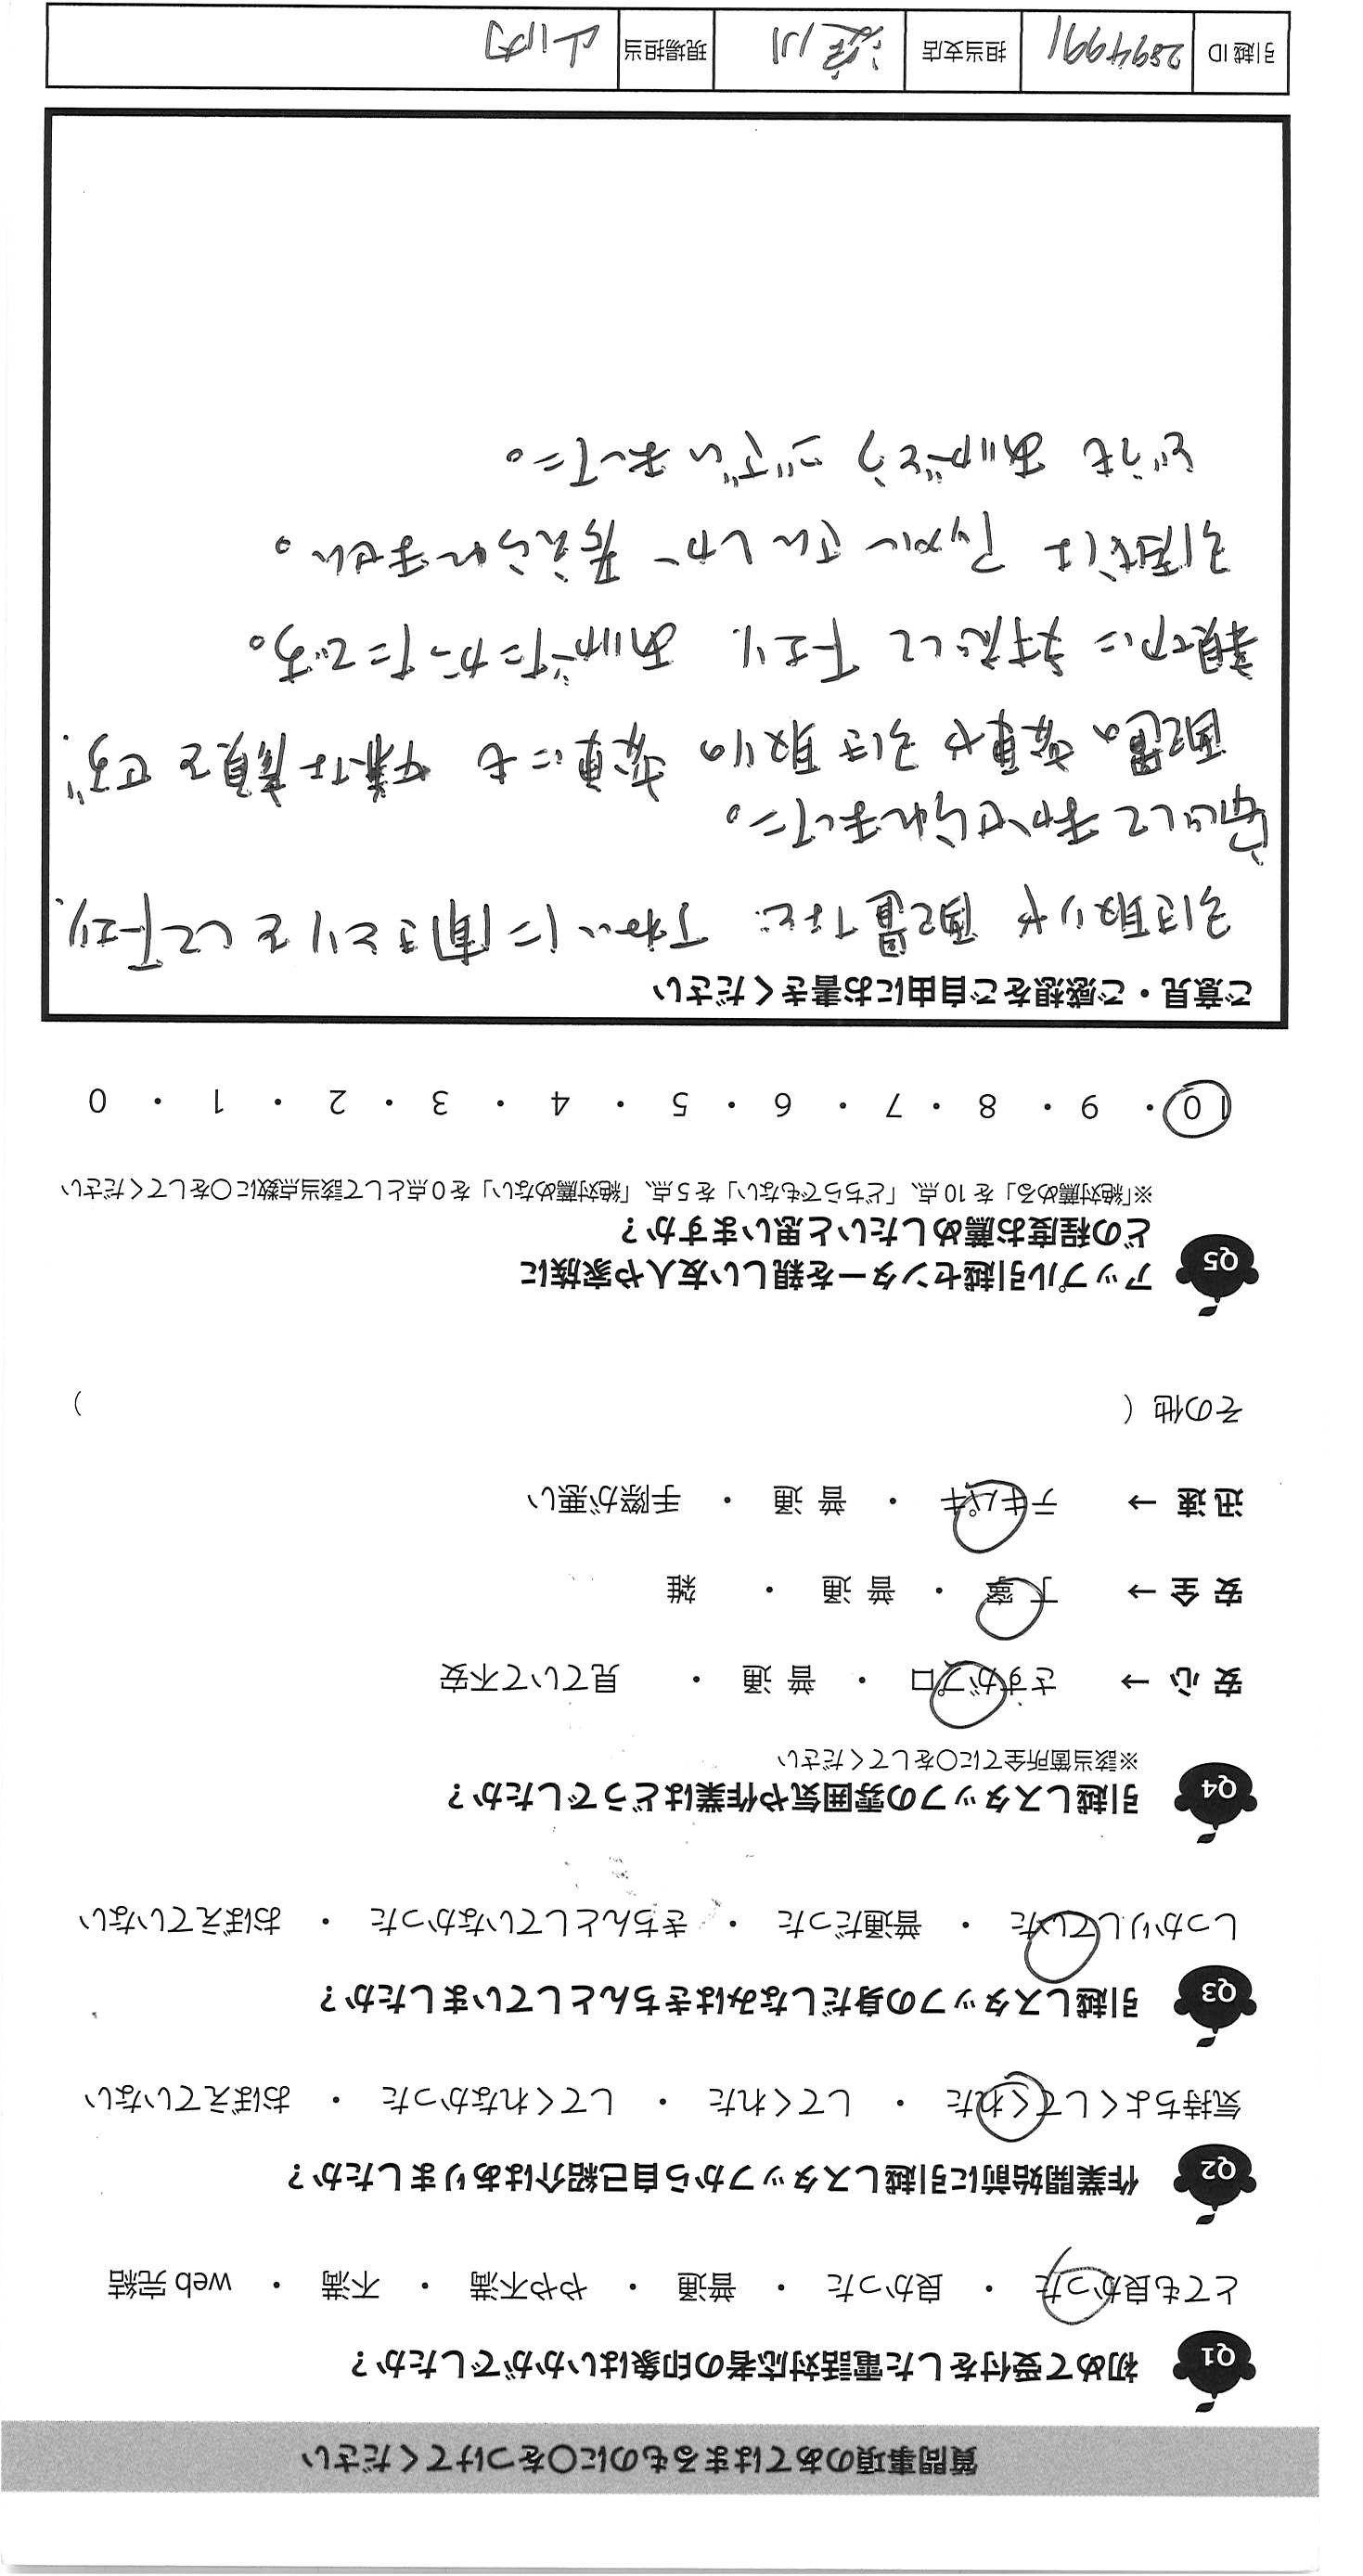 質問事項のあてはまるものに〇をつけてください
Q1 初めて受付をした電話対応者の印象はいかがでしたか？
とても良かった ・ 良かった ・ 普通 ・ やや不満 ・ 不満 ・ web 完結
Q2 作業開始前に引越しスタッフから自己紹介はありましたか？
気持ちよくしてくれた ・ してくれた ・ してくれなかった ・ おぼえていない
Q3 引越しスタッフの身だしなみはきちんとしていましたか？
しっかりしていた ・ 普通だった ・ きちんとしていなかった ・ おぼえていない
Q4 引越しスタッフの雰囲気や作業はどうでしたか？
※該当箇所全てに〇をしてください
安 心 → さすがプロ ・ 普 通 ・ 見ていて不安
安 全 → 丁 寧 ・ 普 通 ・ 雑
迅 速 → テキパキ ・ 普 通 ・ 手際が悪い
その他（ ）
Q5 アップル引越センターを親しい友人や家族に
どの程度お薦めしたいと思いますか？
※「絶対薦める」を 10 点、「どちらでもない」を 5 点、「絶対薦めない」を 0 点として該当点数に〇をしてください
10 ・ 9 ・ 8 ・ 7 ・ 6 ・ 5 ・ 4 ・ 3 ・ 2 ・ 1 ・ 0
ご意見・ご感想をご自由にお書きください
引き取りや 配置など ていねいに聞きとりをして下さり、
安心して まかせられました。
配置の変更や引き取りの 変更にも 笑顔で
親切に 対応して 下さり ありがたかったです。
引越は アップルさんしか 考えられません。
どうも ありがとうございました。
引越 ID 2894991 担当支店 淀川 現場担当 山内